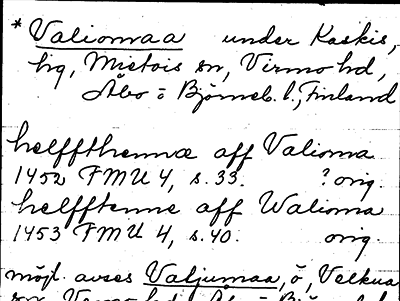 * Valiomaa under Kaskis,
hg, Mietois sn, Virmo hd,
Åbo o Björneb. l., Finland
helffthennæ aff Valioma
1452 FMU 4, s. 33. ? orig.
helfftenne aff Walioma
1453 FMU 4, s. 40. orig.
möjl. avses Valjumaa, ö, Velkua
sn, Virmo hd, Åbo o Björneb. l.